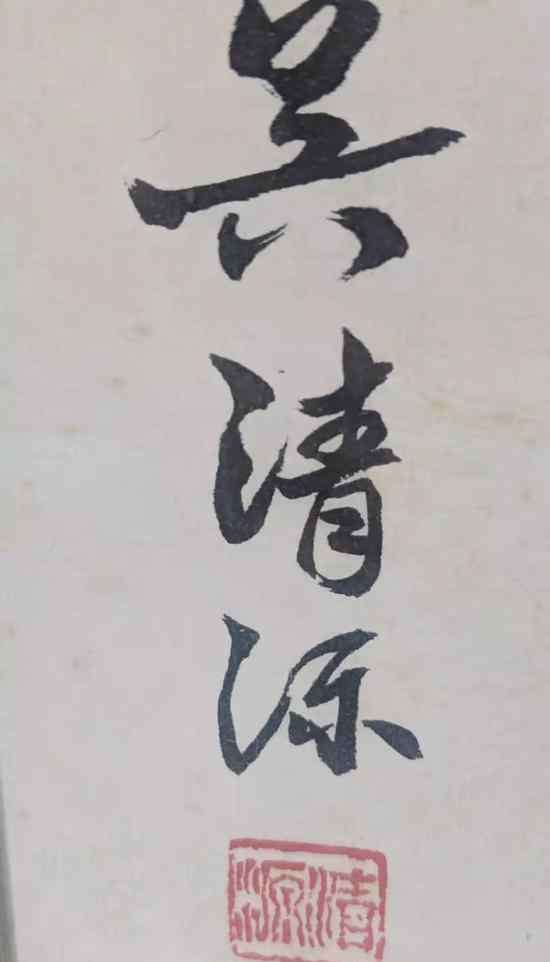 吴清源
清源